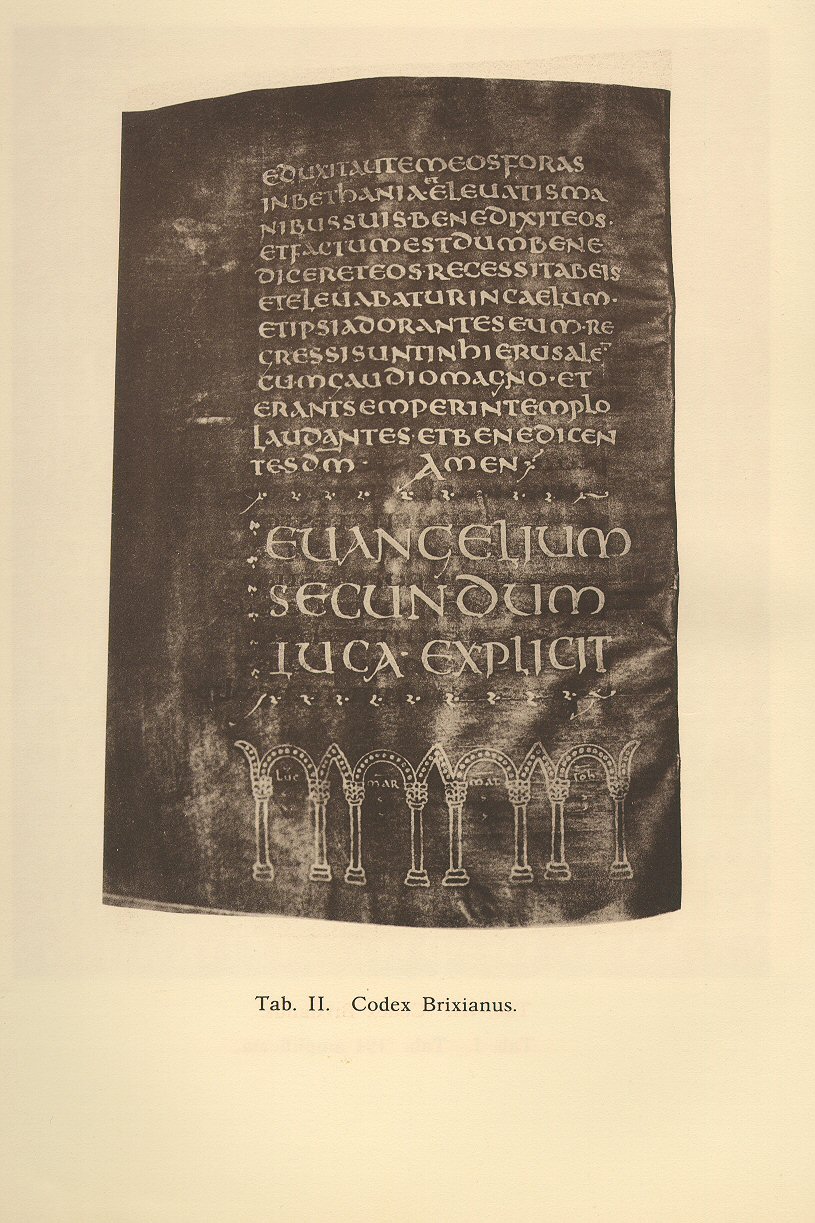 EDUXITAUTEMEOSFORAS
INBETHANIA·ET ELEUATISMA
NIBUSSUIS·BENEDIXITEOS·
ETFACTUMESTDUMBENE
DICERETEOS·RECESSITABEIS
ETELEUABATURINCAELUM·
ETIPSIADORANTESEUM·RE
GRESSISUNTINHIERUSALE̅·
CUMGAUDIOMAGNO·ET
ERANTSEMPERINTEMPLO
LAUDANTES·ETBENEDICEN
TESD̅M̅· AMEN
EUANGELIUM
SECUNDUM
LUCA· EXPLICIT
LUC MAR MAT IOH
S S
Tab. II. Codex Brixianus.